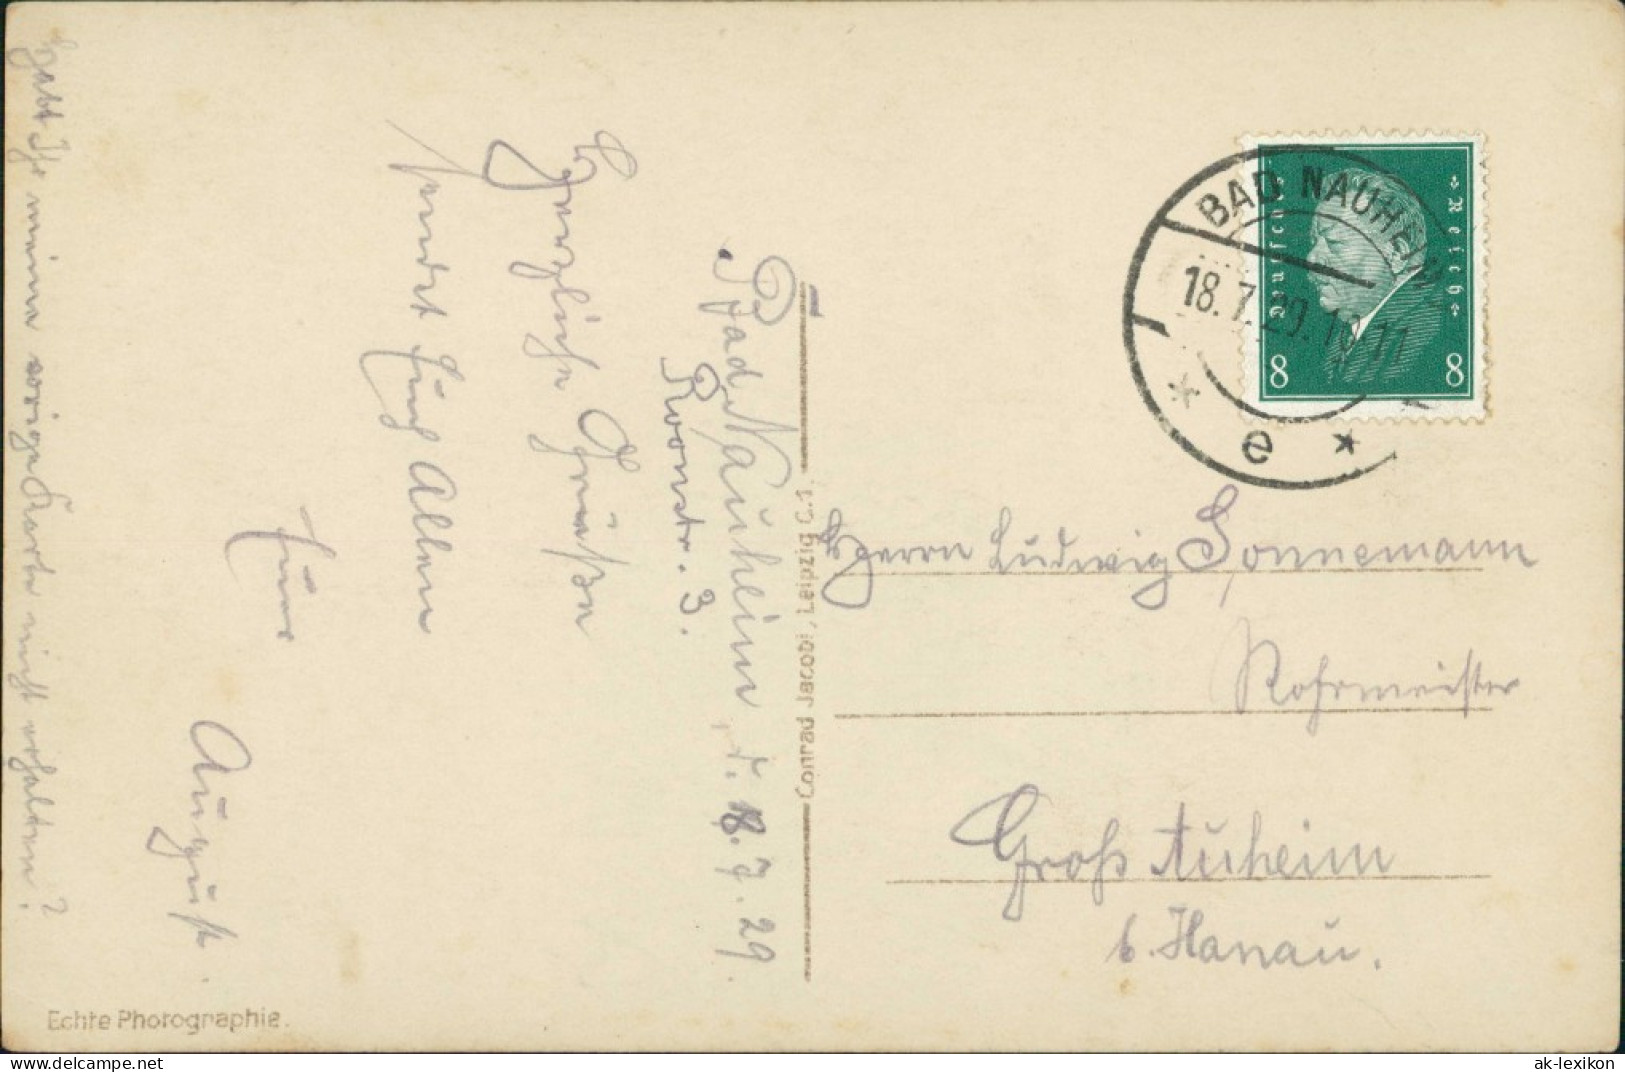 Bad Nauheim, d. 18.7.29.
Roonstr. 3.
Herzliche Grüße
sendet Euch Allen
Euer
August.
Habt Ihr meine vorige Karte nicht erhalten?
Echte Phorographie.
Conrad Jacobi, Leipzig C.1.
BAD NAUHEIM
18.7.29.10-11
* e *
Deutsches Reich
8 8
Herrn Ludwig Sonnemann
Rohrmeister
Groß Auheim
b. Hanau.
delcampe.net
ak-lexikon